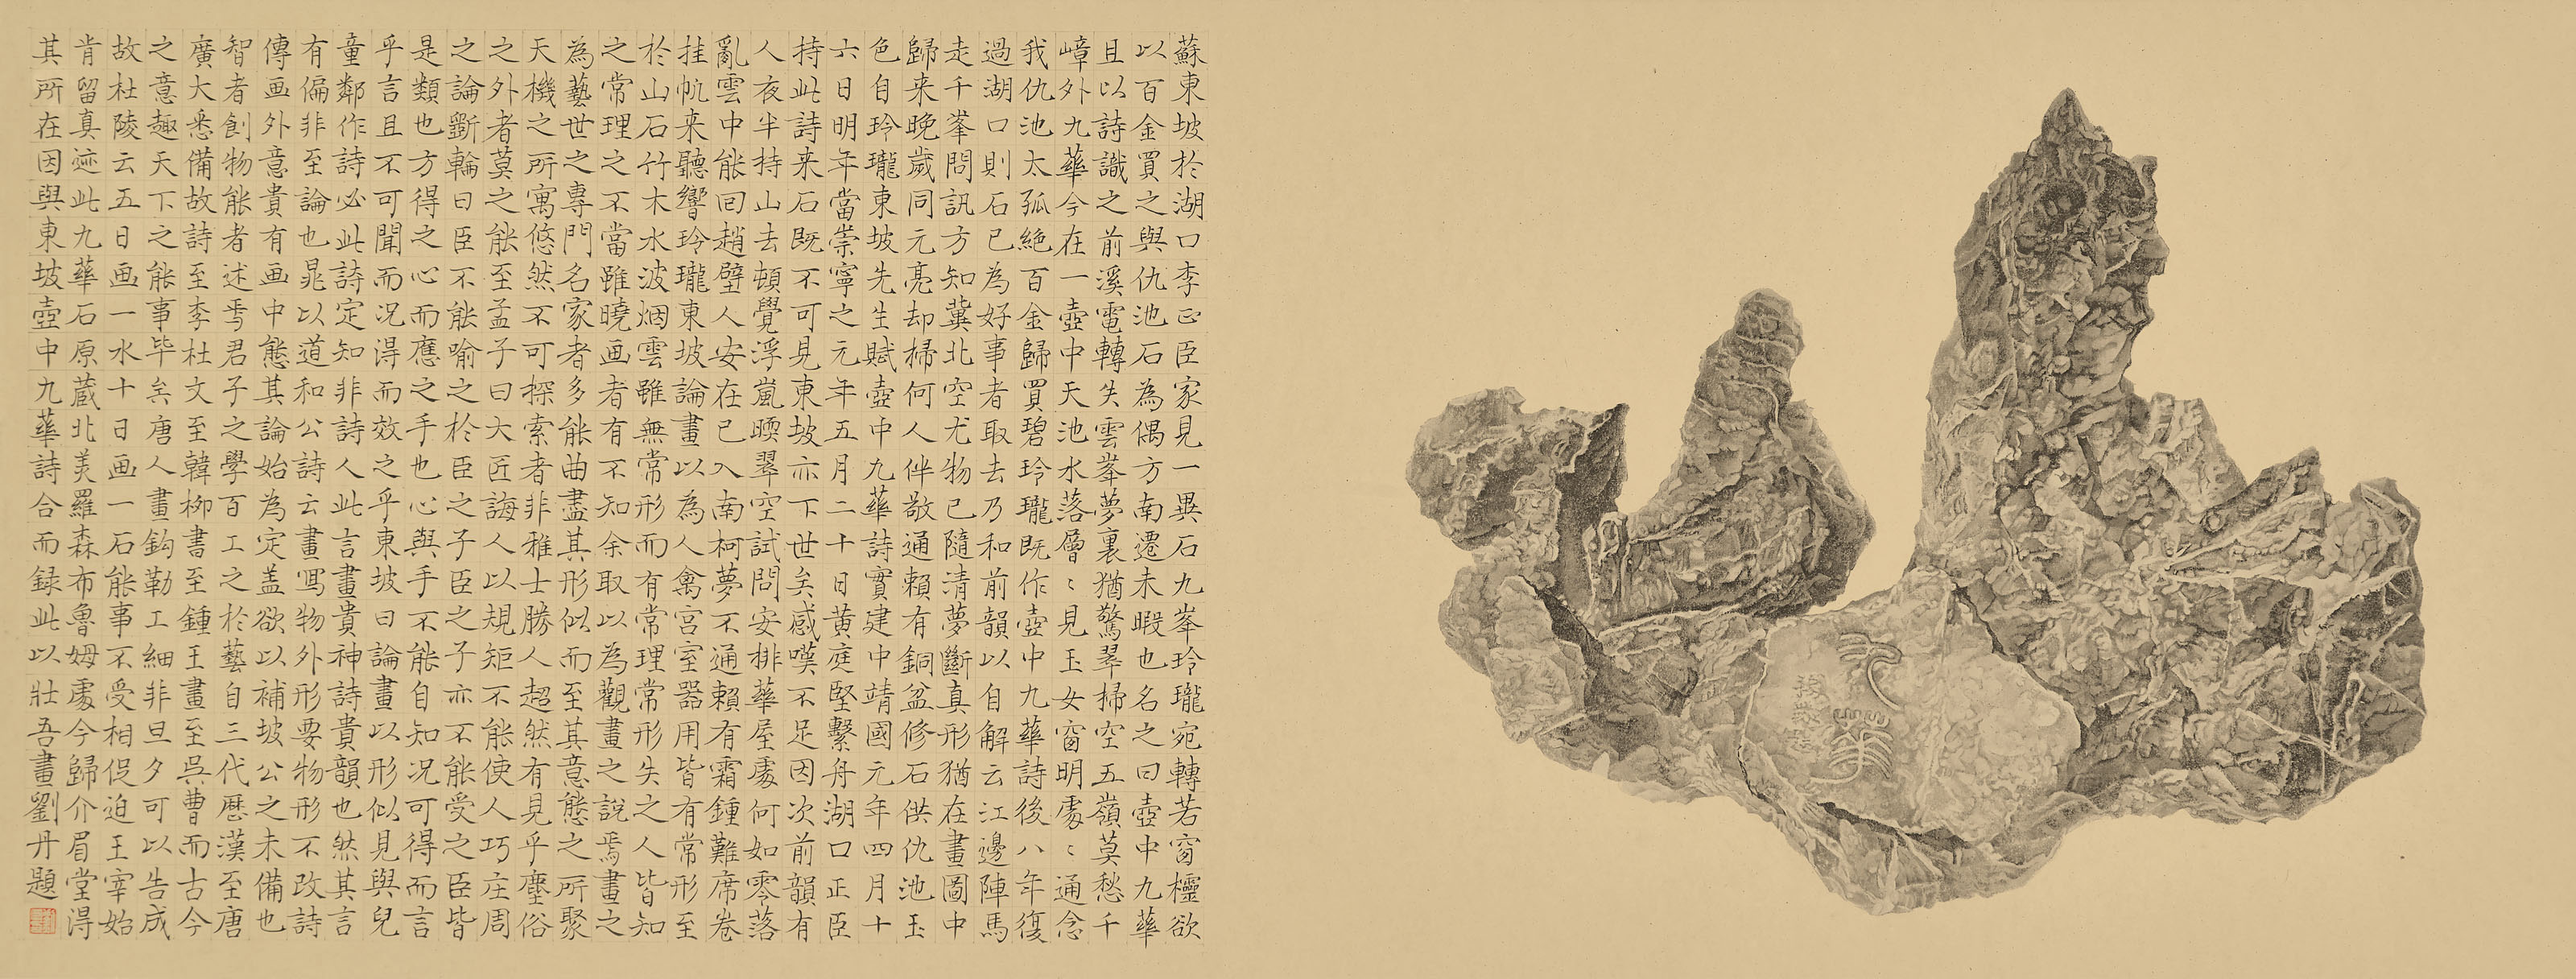 蘇東坡於湖口李正臣家見一異石九峯玲瓏宛轉若窗櫺欲
以百金買之與仇池石為偶方南遷未暇也名之曰壺中九華
且以詩識之前溪電轉失雲峯夢裏猶驚翠掃空五嶺莫愁千
嶂外九華今在一壺中天池水落層〻見玉女窗明處〻通念
我仇池太孤絕百金歸買碧玲瓏既作壺中九華詩後八年復
過湖口則石已為好事者取去乃和前韻以自解云江邊陣馬
走千峯問訊方知冀北空尤物已隨清夢斷真形猶在畫圖中
歸来晚歲同元亮却掃何人伴敬通賴有銅盆修石供仇池玉
色自玲瓏東坡先生賦壺中九華詩實建中靖國元年四月十
六日明年當崇寧之元年五月二十日黄庭堅繫舟湖口正臣
持此詩来石既不可見東坡亦下世矣感嘆不足因次前韻有
人夜半持山去頓覺浮嵐暖翠空試問安排華屋處何如零落
亂雲中能回趙璧人安在已入南柯夢不通賴有霜鍾難席卷
挂帆来聽響玲瓏東坡論畫以為人禽宮室器用皆有常形至
於山石竹木水波烟雲雖無常形而有常理常形失之人皆知
之常理之不當雖曉画者有不知余取以為觀畫之說焉畫之
為藝世之專門名家者多能曲盡其形似而至其意態之所聚
天機之所寓悠然不可探索者非雅士勝人超然有見乎塵俗
之外者莫之能至孟子曰大匠誨人以規矩不能使人巧庄周
之論斷輪曰臣不能喻之於臣之子臣之子亦不能受之臣皆
是類也方得之心而應之手也心與手不能自知況可得而言
乎言且不可聞而況得而效之乎東坡曰論畫以形似見與兒
童鄰作詩必此詩定知非詩人此言畫貴神詩貴韻也然其言
有偏非至論也晁以道和公詩云畫寫物外形要物形不改詩
傳画外意貴有画中態其論始為定盖欲以補坡公之未備也
智者創物能者述焉君子之學百工之於藝自三代歷漢至唐
廣大悉備故詩至李杜文至韓柳書至鍾王畫至吳曹而古今
之意趣天下之能事毕矣唐人畫鈎勒工細非旦夕可以告成
故杜陵云五日画一水十日画一石能事不受相促迫王宰始
肯留真迹此九華石原蔵北美羅森布魯姆處今歸介眉堂得
其所在因與東坡壺中九華詩合而録此以壯吾畫劉丹題
九華